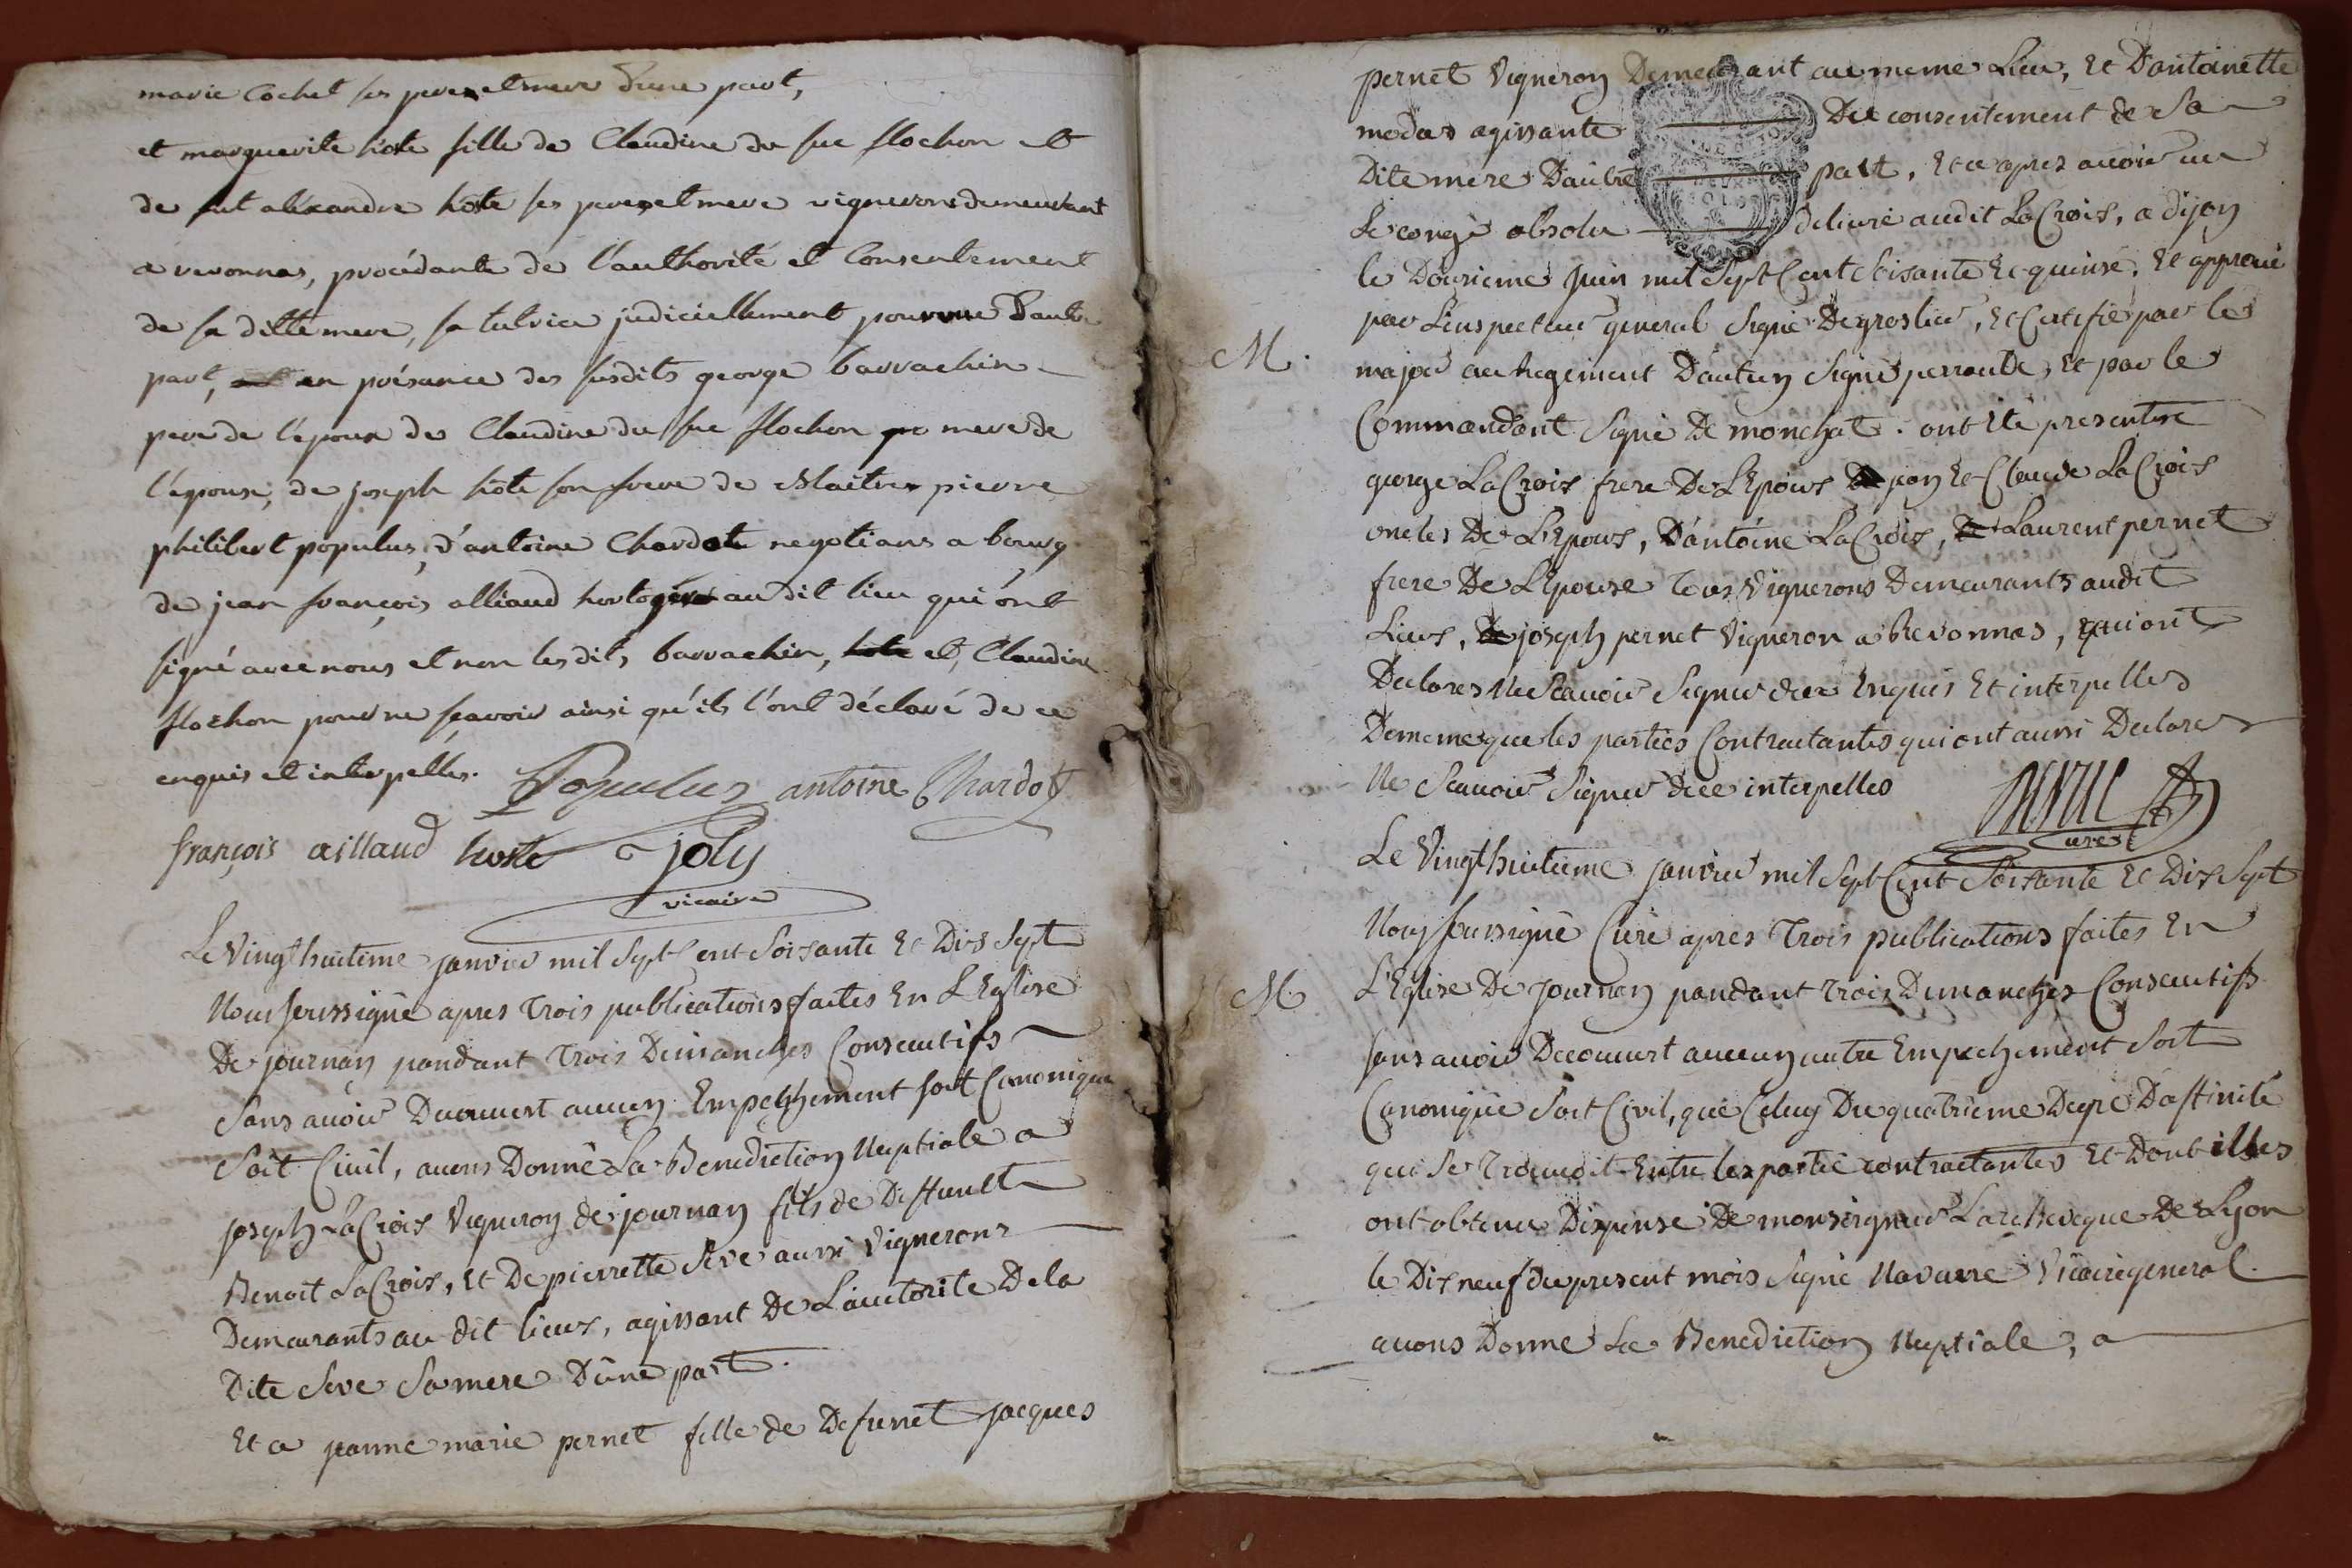 marie Cochet ses peres et mere d'une part,
et marguerite hôte fille de Claudine du fue flochon et
de fut aléxandre hôte ses peres et mere vignerons demeurant
a revonnas, procédante de l'authorité et Consentement
de sa ditte mere, sa tutrice judiciellement pourvue d'autre
part, en présance des susdits george barrachin
pere de l'époux de Claudine du fue flochon mere de
l'épouse, de joseph hôte son frere de Maitre pierre
philibert populus, d'antoine Chardot negotians a bourg
de jean françois alliaud horloger au dit lieu qui ont
signé avec nous et non les dits barrachin, hote et, Claudine
flochon pour ne sçavoir ainsi qu'ils l'ont déclaré de ce
enquis et interpellés. Populus antoine Chardot
françois aillaud hoste joly
vicaire
Le Vingt huitieme janvier mil Sept Cent Soisante Et Dis Sept
Nous soussigné apres Trois publications faites En L'Eglise
De journan pandant Trois Dimanches Consecutifs
Sans avoir Decouvert aucun Empechement soit Canonique
Soit Civil, avons Donné La Benediction Nuptiale a
joseph LaCrois Vigneron de journan fils de Deffunct
Benoit LaCrois, Et De pierrette Seve aussi Vignerons
Demeurants au dit lieux, agissant De L'autorite De la
Dite Seve Sa mere D'une part.
Et a jeanne marie pernet fille de Defunct jacques
pernet Vigneron Demeurant au meme Lieu, Et D'antoinette
medas agissante Du consentement de Sa
Dite mere D'autre part, Et ce apres avoir vu
Le congé absolu delivré audit LaCrois, a dijon
le Douzieme Juin mil Sept Cent Soisante Et quinse, Et approuvé
par L'inspecteur general Signé Degroslier, Et Certifié par le
M. major au Regiment D'autun Signé perrault, Et par le
Commandant Signé De monchat. ont été presents
george LaCrois frere De L'Epoux pon Et Claude LaCrois
oncles De L'Epoux, D'antoine LaCrois, Laurent pernet
frere De L'Epouse Tous Vignerons Demeurants audit
Lieux, joseph pernet Vigneron a Revonnas, qui ont
Declarés Ne Scauoir Signer de ce Enquis Et interpelles
De meme que les parties Contractantes qui ont aussi Declarer
Ne Scauoir Signer de ce interpelles
curé
Le Vingt huitieme janvier mil Sept Cent Soisante Et Dis Sept
Nous soussigné Curé apres Trois publications faites En
M. L'Eglise De Journan pandant Trois Dimanches Consecutifs
sans avoir Decouvert aucun autre Empechement Soit
Canonique Soit Civil, que Celuy Du quatrieme Degre D'affinité
qui Se Trouvoit Entre les partie contractantes Et Dont illes
ont obtenu Dispense De monseigneur L'archeveque De Lyon
le Dis neuf du present mois Signé Navarre Vicaire general.
avons Donné La Benediction Nuptiale, a